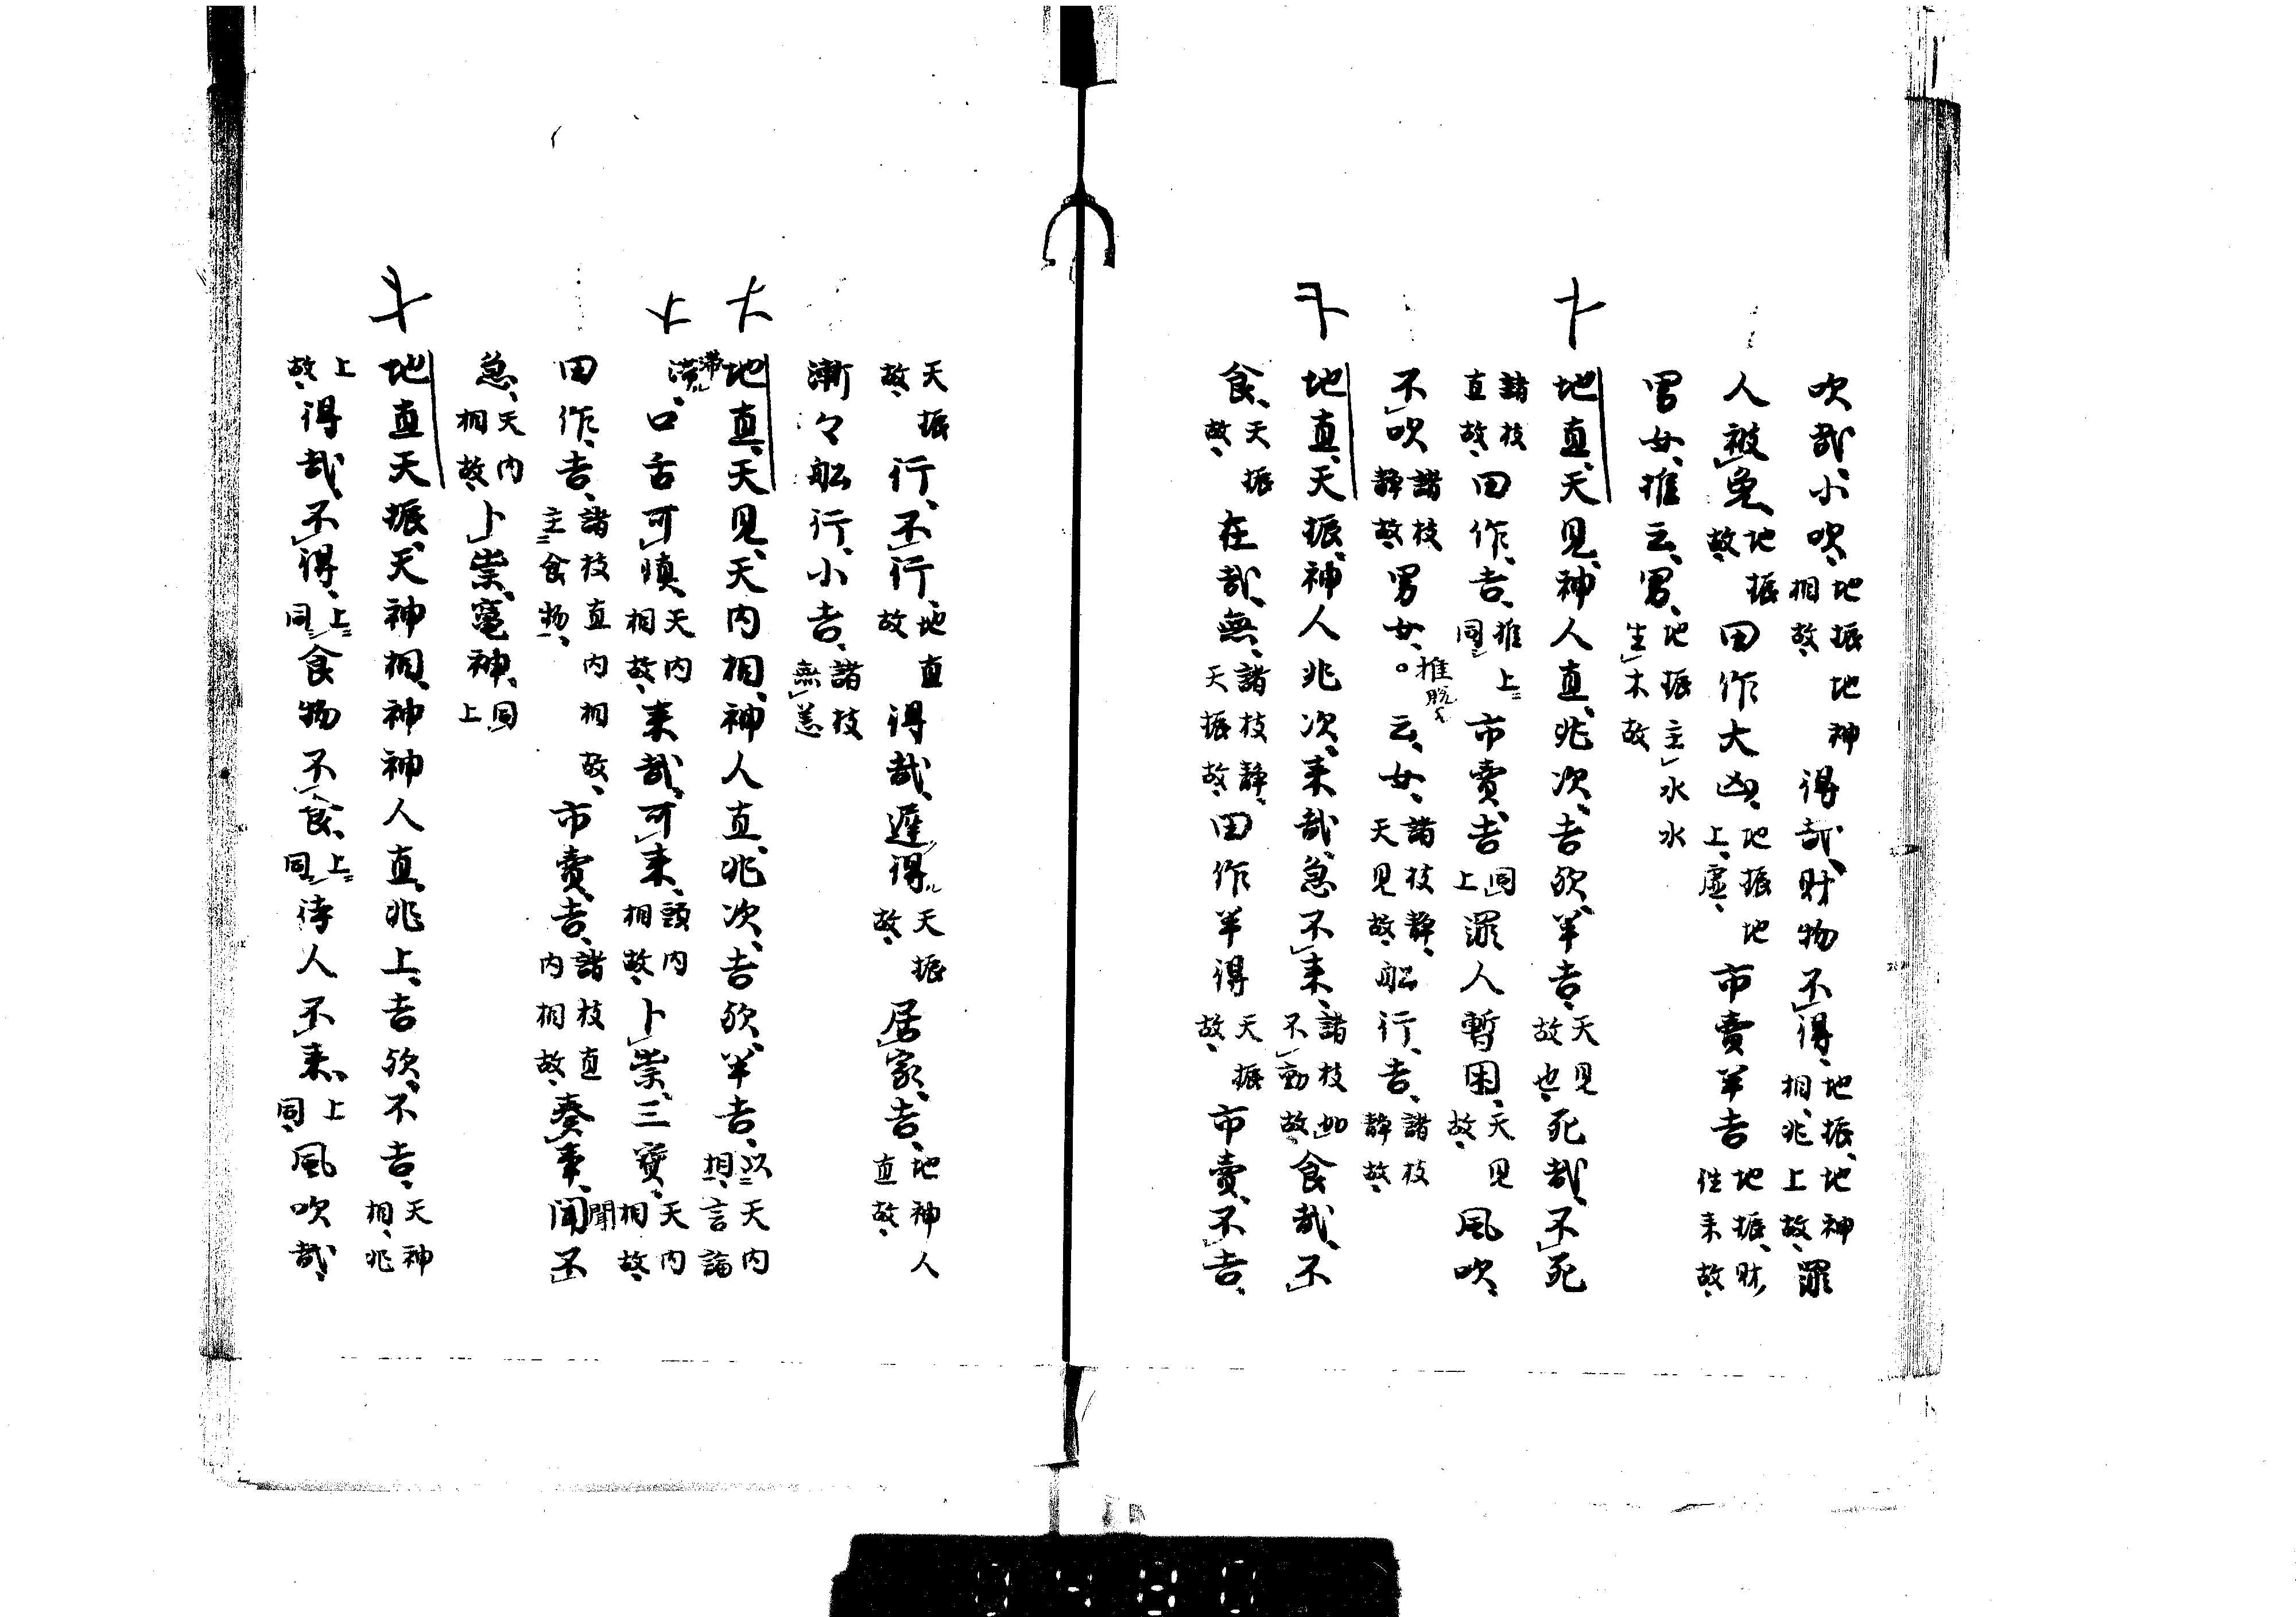 吹哉、小吹、地振地神相故、得哉、財物不得、地振、地神相、兆上故、罪
人被免、地振故、田作大凶、地振地上、虚、市賣半吉地振、財往来故、
男女、推云、男、地振主水水生木故
地直、天見、神人直、兆次、吉欤、半吉、天見故也、死哉、不死
諸枝直故、田作、吉、推上同市賣、吉同上罪人暫困、天見故、風吹、
不吹諸枝静故、男女。推脱歟云、女、諸枝静、天見故、舩行、吉、諸枝静故、
地直、天振、神人兆次、来哉、急不来、諸枝如不動故、食哉、不
食、天振故、在哉、無、諸枝静、天振故、田作半得天振故、市賣、不吉、
天振故、行、不行、地直故得哉、遅得、天振故、居家、吉、地神人直故、
漸々舩行、小吉、諸枝無恙
地直、天見、天内相、神人直、兆次、吉欤、半吉、以天内相、言論
滞、口舌可慎、天内相故、来哉、可来、諸内相故、卜祟、三寳、天内相故、
田作、吉、諸枝直内相故、主食物、市賣、吉、諸枝直内相故、奏事、聞不
急、天内相故、卜祟、竃神、同上
地直、天振、天神相、神神人直、兆上、吉欤、不吉、天神相、兆
上故、得哉、不得、上同食物不食、上同待人不来、上同、風吹哉、